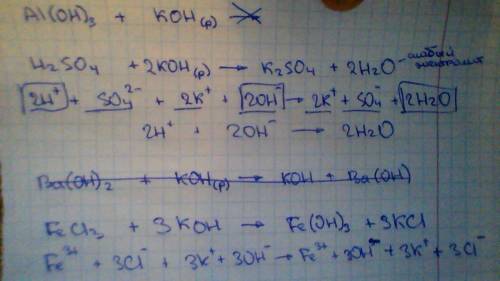 Al(OH)₃ + KOH(р) →
H₂SO₄ + 2KOH(р) → K₂SO₄ + 2H₂O - слабый электролит
2H⁺ + SO₄²⁻ + 2K⁺ + 2OH⁻ → 2K⁺ + SO₄⁻ + 2H₂O
2H⁺ + 2OH⁻ → 2H₂O
Ba(OH)₂ + KOH(р) → KOH + Ba(OH)
FeCl₃ + 3KOH → Fe(OH)₃ + 3KCl
Fe³⁺ + 3Cl⁻ + 3K⁺ + 3OH⁻ → Fe³⁺ + 3OH⁻ + 3K⁺ + 3Cl⁻